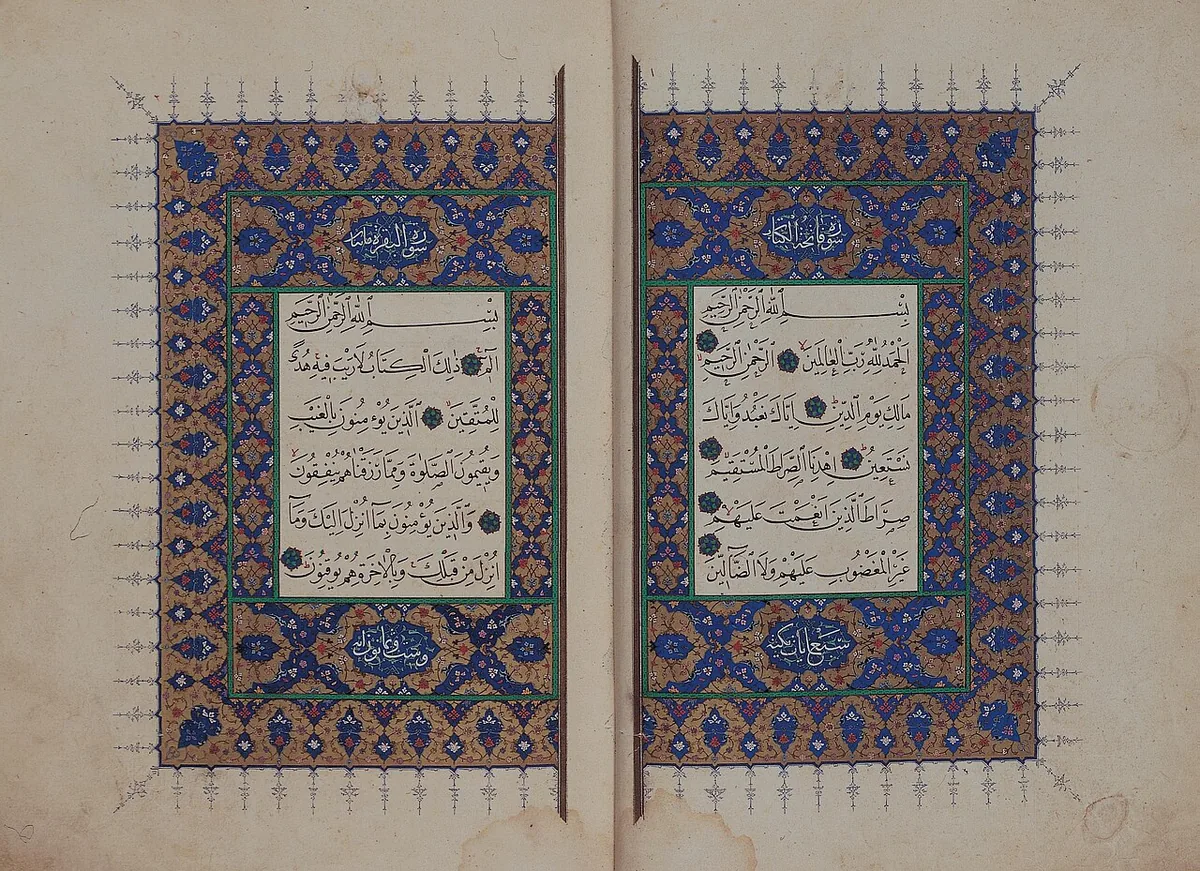 سورة فاتحة الكتاب
بِسْمِ اللّٰهِ الرَّحْمٰنِ الرَّحِيمِ
اَلْحَمْدُ لِلّٰهِ رَبِّ الْعَالَمِينَ الرَّحْمٰنِ الرَّحِيمِ
مَالِكِ يَوْمِ الدِّينِ اِيَّاكَ نَعْبُدُ وَاِيَّاكَ
نَسْتَعِينُ اِهْدِنَا الصِّرَاطَ الْمُسْتَقِيمَ
صِرَاطَ الَّذِينَ اَنْعَمْتَ عَلَيْهِمْ
غَيْرِ الْمَغْضُوبِ عَلَيْهِمْ وَلَا الضَّالِّينَ
سبع ايات مكية
سورة البقرة مائتا
بِسْمِ اللّٰهِ الرَّحْمٰنِ الرَّحِيمِ
الٓمٓ ذٰلِكَ الْكِتَابُ لَا رَيْبَ فِيهِ هُدًى
لِلْمُتَّقِينَ اَلَّذِينَ يُؤْمِنُونَ بِالْغَيْبِ
وَيُقِيمُونَ الصَّلٰوةَ وَمِمَّا رَزَقْنَاهُمْ يُنْفِقُونَ
وَالَّذِينَ يُؤْمِنُونَ بِمَا اُنْزِلَ اِلَيْكَ وَمَا
اُنْزِلَ مِنْ قَبْلِكَ وَبِالْاٰخِرَةِ هُمْ يُوقِنُونَ
وست وثمانون